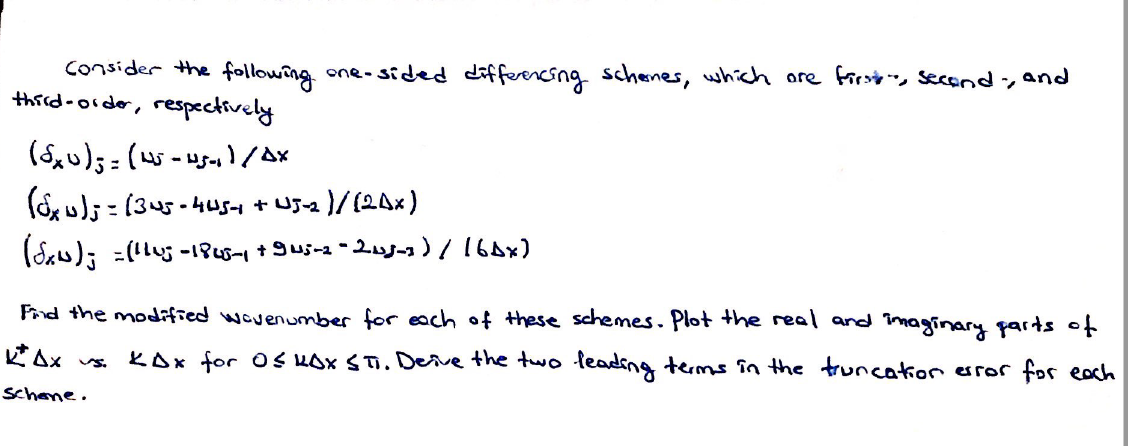 Consider the following one-sided differencing schemes, which are first-, second-, and
third-order, respectively
(δₓu)ⱼ = (uⱼ - uⱼ₋₁) / Δx
(δₓu)ⱼ = (3uⱼ - 4uⱼ₋₁ + uⱼ₋₂) / (2Δx)
(δₓu)ⱼ = (11uⱼ - 18uⱼ₋₁ + 9uⱼ₋₂ - 2uⱼ₋₃) / (6Δx)
Find the modified wavenumber for each of these schemes. Plot the real and imaginary parts of
K*Δx vs. KΔx for 0 ≤ KΔx ≤ π. Derive the two leading terms in the truncation error for each
scheme.